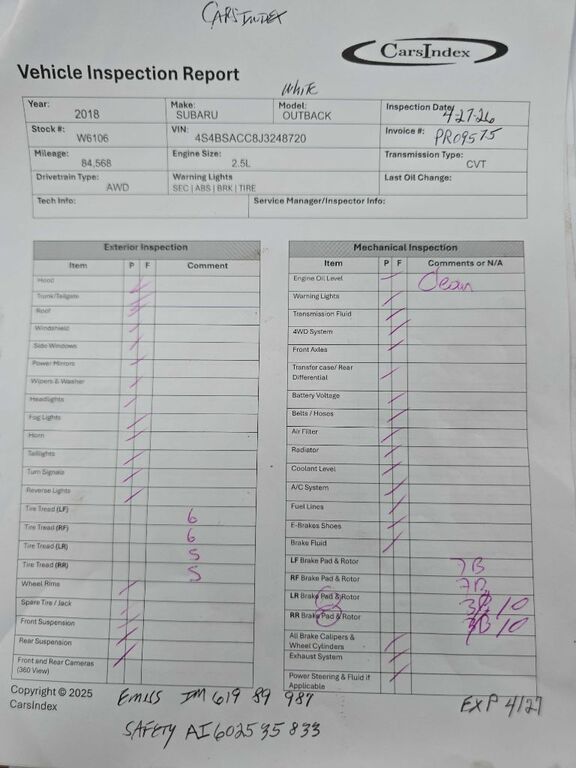 CARSINDEX
CarsIndex
Vehicle Inspection Report
White
Year: 2018 Make: SUBARU Model: OUTBACK Inspection Date: 4-27-26
Stock #: W6106 VIN: 4S4BSACC8J3248720 Invoice #: PRO9575
Mileage: 84,568 Engine Size: 2.5L Transmission Type: CVT
Drivetrain Type: AWD Warning Lights SEC | ABS | BRK | TIRE Last Oil Change:
Tech Info: Service Manager/Inspector Info:
Exterior Inspection
Item P F Comment
Hood
Trunk/Tailgate
Roof
Windshield
Side Windows
Power Mirrors
Wipers & Washer
Headlights
Fog Lights
Horn
Taillights
Turn Signals
Reverse Lights
Tire Tread (LF) 6
Tire Tread (RF) 6
Tire Tread (LR) 5
Tire Tread (RR) 5
Wheel Rims
Spare Tire / Jack
Front Suspension
Rear Suspension
Front and Rear Cameras
(360 View)
Mechanical Inspection
Item P F Comments or N/A
Engine Oil Level Clean
Warning Lights
Transmission Fluid
4WD System
Front Axles
Transfer case/ Rear
Differential
Battery Voltage
Belts / Hoses
Air Filter
Radiator
Coolant Level
A/C System
Fuel Lines
E-Brakes Shoes
Brake Fluid
LF Brake Pad & Rotor 7B
RF Brake Pad & Rotor 7B
LR Brake Pad & Rotor 10
RR Brake Pad & Rotor 10
All Brake Calipers &
Wheel Cylinders
Exhaust System
Power Steering & Fluid if
Applicable
Copyright © 2025
CarsIndex
EMISS IM 619 89 987 EXP 4/27
SAFETY AI602535833